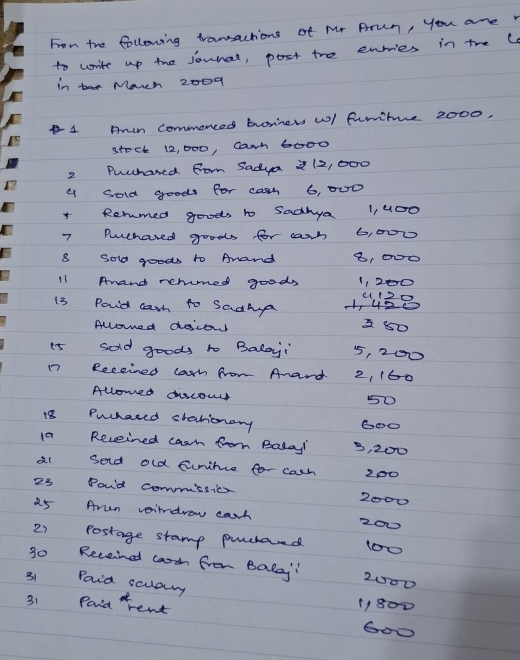 From the following transactions of Mr Arun, you are
to write up the journal, post the entries in the
in March 2009
1 Arun commenced business w/ furniture 2000,
stock 12,000, cash 6000
2 Purchased from Sadya 12,000
4 Sold goods for cash 6,000
Returned goods to Sadhya 1,400
7 Purchased goods for cash 6,000
8 Sold goods to Anand 8,000
11 Anand returned goods 1,200
13 Paid cash to Sadhya 4,120
Allowed discout 80
15 Sold goods to Balaji 5,200
17 Received cash from Anand 2,160
Allowed discout 50
18 Puchased stationery 600
19 Received cash from Balaji 3,200
21 Sold old furnitue for cash 200
23 Paid commission 2000
25 Arun withdraw cash 200
27 Postage stamp purchased 100
30 Received cash from Balaji 2000
31 Paid salary 1,800
31 Paid rent 600